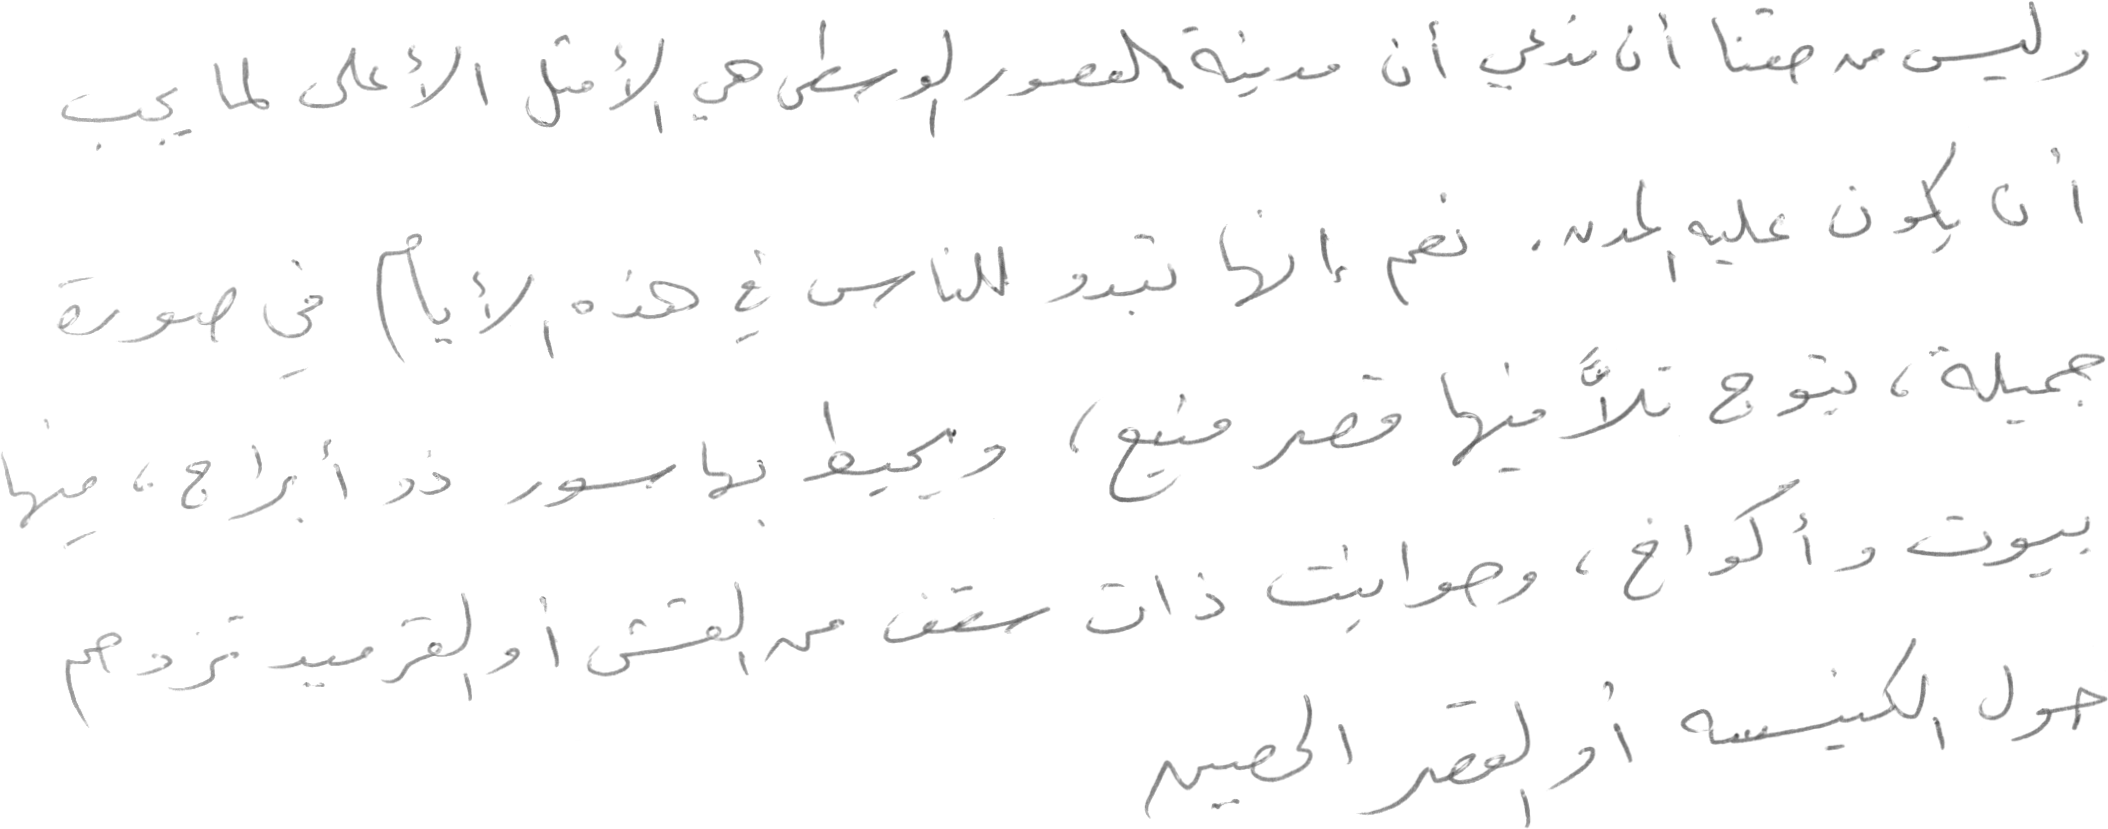 وليس من حقنا أن ندعي أن مدينة العصور الوسطى هي الأمثل الأعلى لما يجب
أن يكون عليه المدن. نعم إنها تبدو للناس في هذه الأيام في صورة
جميلة، يتوج تلاًّ منها قصر منيع، ويحيط بها سور ذو أبراج، منها
بيوت وأكواخ، وحوانيت ذات سقف من القش أو القرميد تزدحم
حول الكنيسه أو القصر الحصين